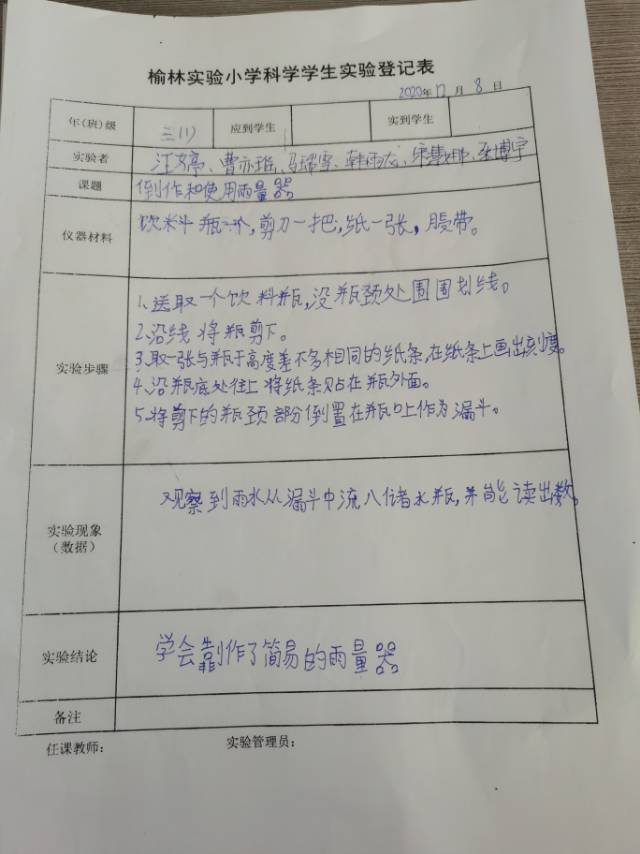 榆林实验小学科学学生实验登记表
2020年12月8日
年(班)级 三(1) 应到学生 实到学生
实验者 曹亦
课题 制作和使用雨量器
仪器材料 饮料瓶一个,剪刀一把,纸一张,胶带。
实验步骤
1、选取一个饮料瓶,没瓶颈处围围划线。
2、沿线将瓶剪下。
3、取一张与瓶子高度差不多相同的纸条,在纸条上画出刻度。
4、沿瓶底处往上将纸条贴在瓶外面。
5、将剪下的瓶颈部分倒置在瓶口上作为漏斗。
实验现象
(数据)
观察到雨水从漏斗中流入储水瓶,并能读出数。
实验结论 学会制作了简易的雨量器
备注
任课教师: 实验管理员: